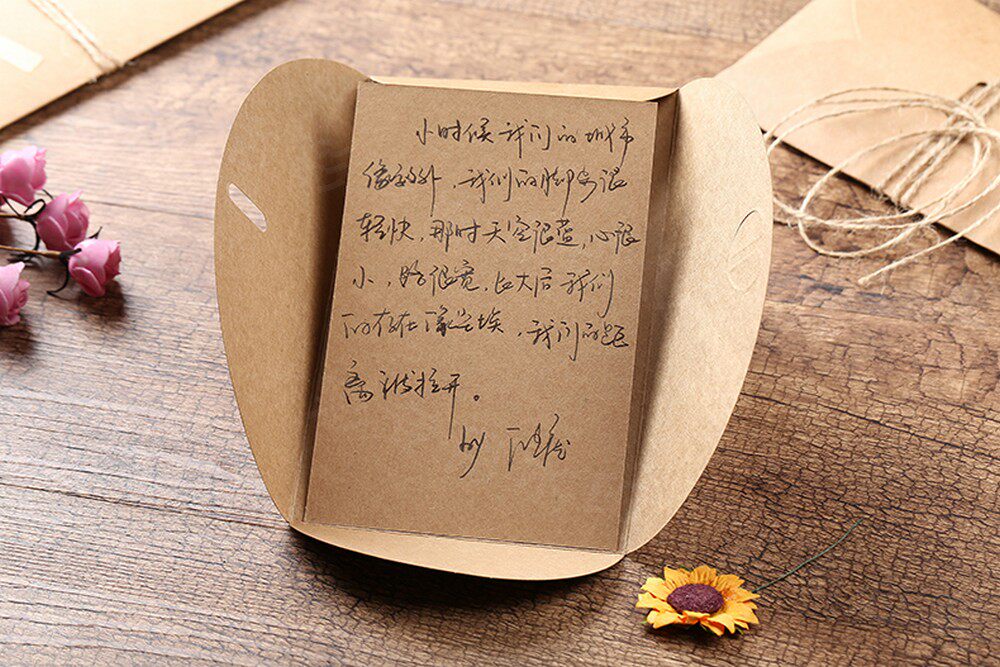 小时候我们的城市
像郊外,我们的脚步很
轻快,那时天空很蓝,心很
小,路很宽,长大后我们
的存在像尘埃,我们的距
离被拉开。